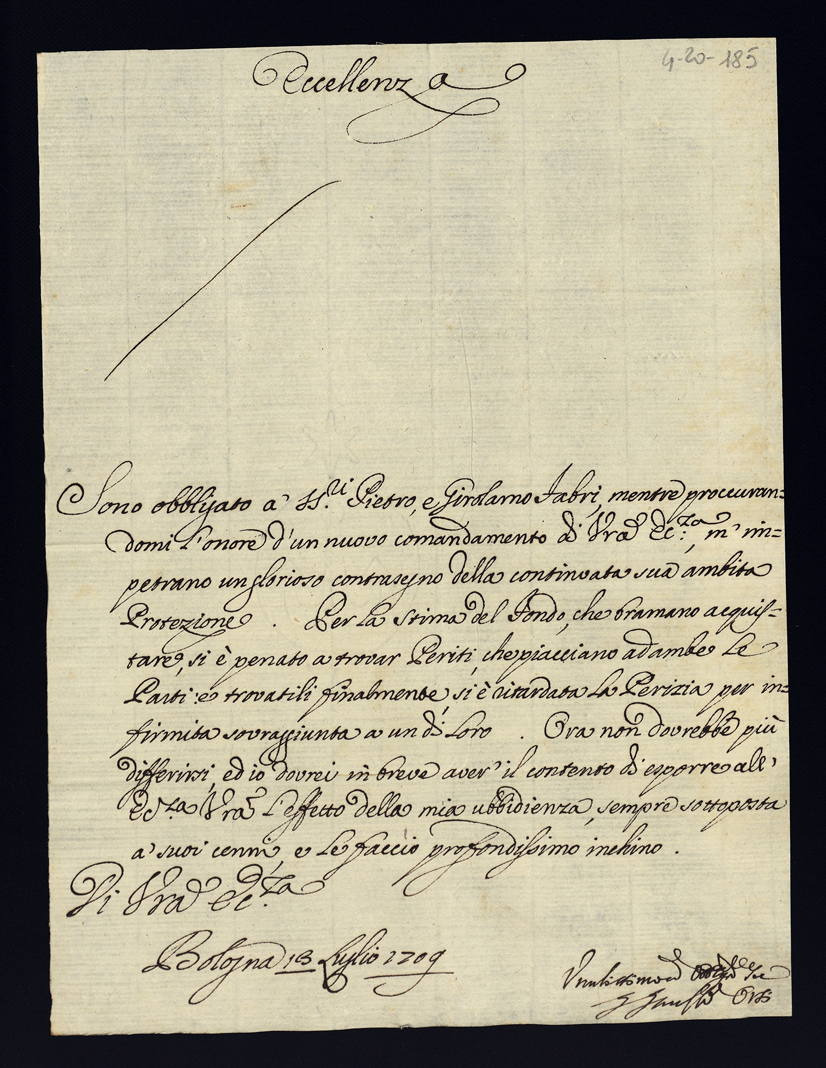 4-20-185
Eccellenza
Sono obbligato a' SS.ri Pietro, e Girolamo Fabri, mentre proccuran=
domi l'onore d'un nuovo comandamento di Vra Ecc.za, m' im=
petrano un glorioso contrasegno della continovata sua ambita
Protezione. Per la stima del Fondo, che bramano acquis=
tare, si è penato a trovar Periti, che piacciano ad ambe le
Parti: e trovatili finalmente, si è ritardata la Perizia per in=
firmita sovraggiunta a un di Loro. Ora non dovrebbe più
differirsi, ed io dovrei in breve aver' il contento di esporre all'
Ecc.za Vra l'effetto della mia ubbidienza, sempre sottoposta
a' suoi cenni, e le faccio profondissimo inchino.
Di Vra Ecc.za
Bologna 13 Luglio 1709
Umilissimo ed
Orsi